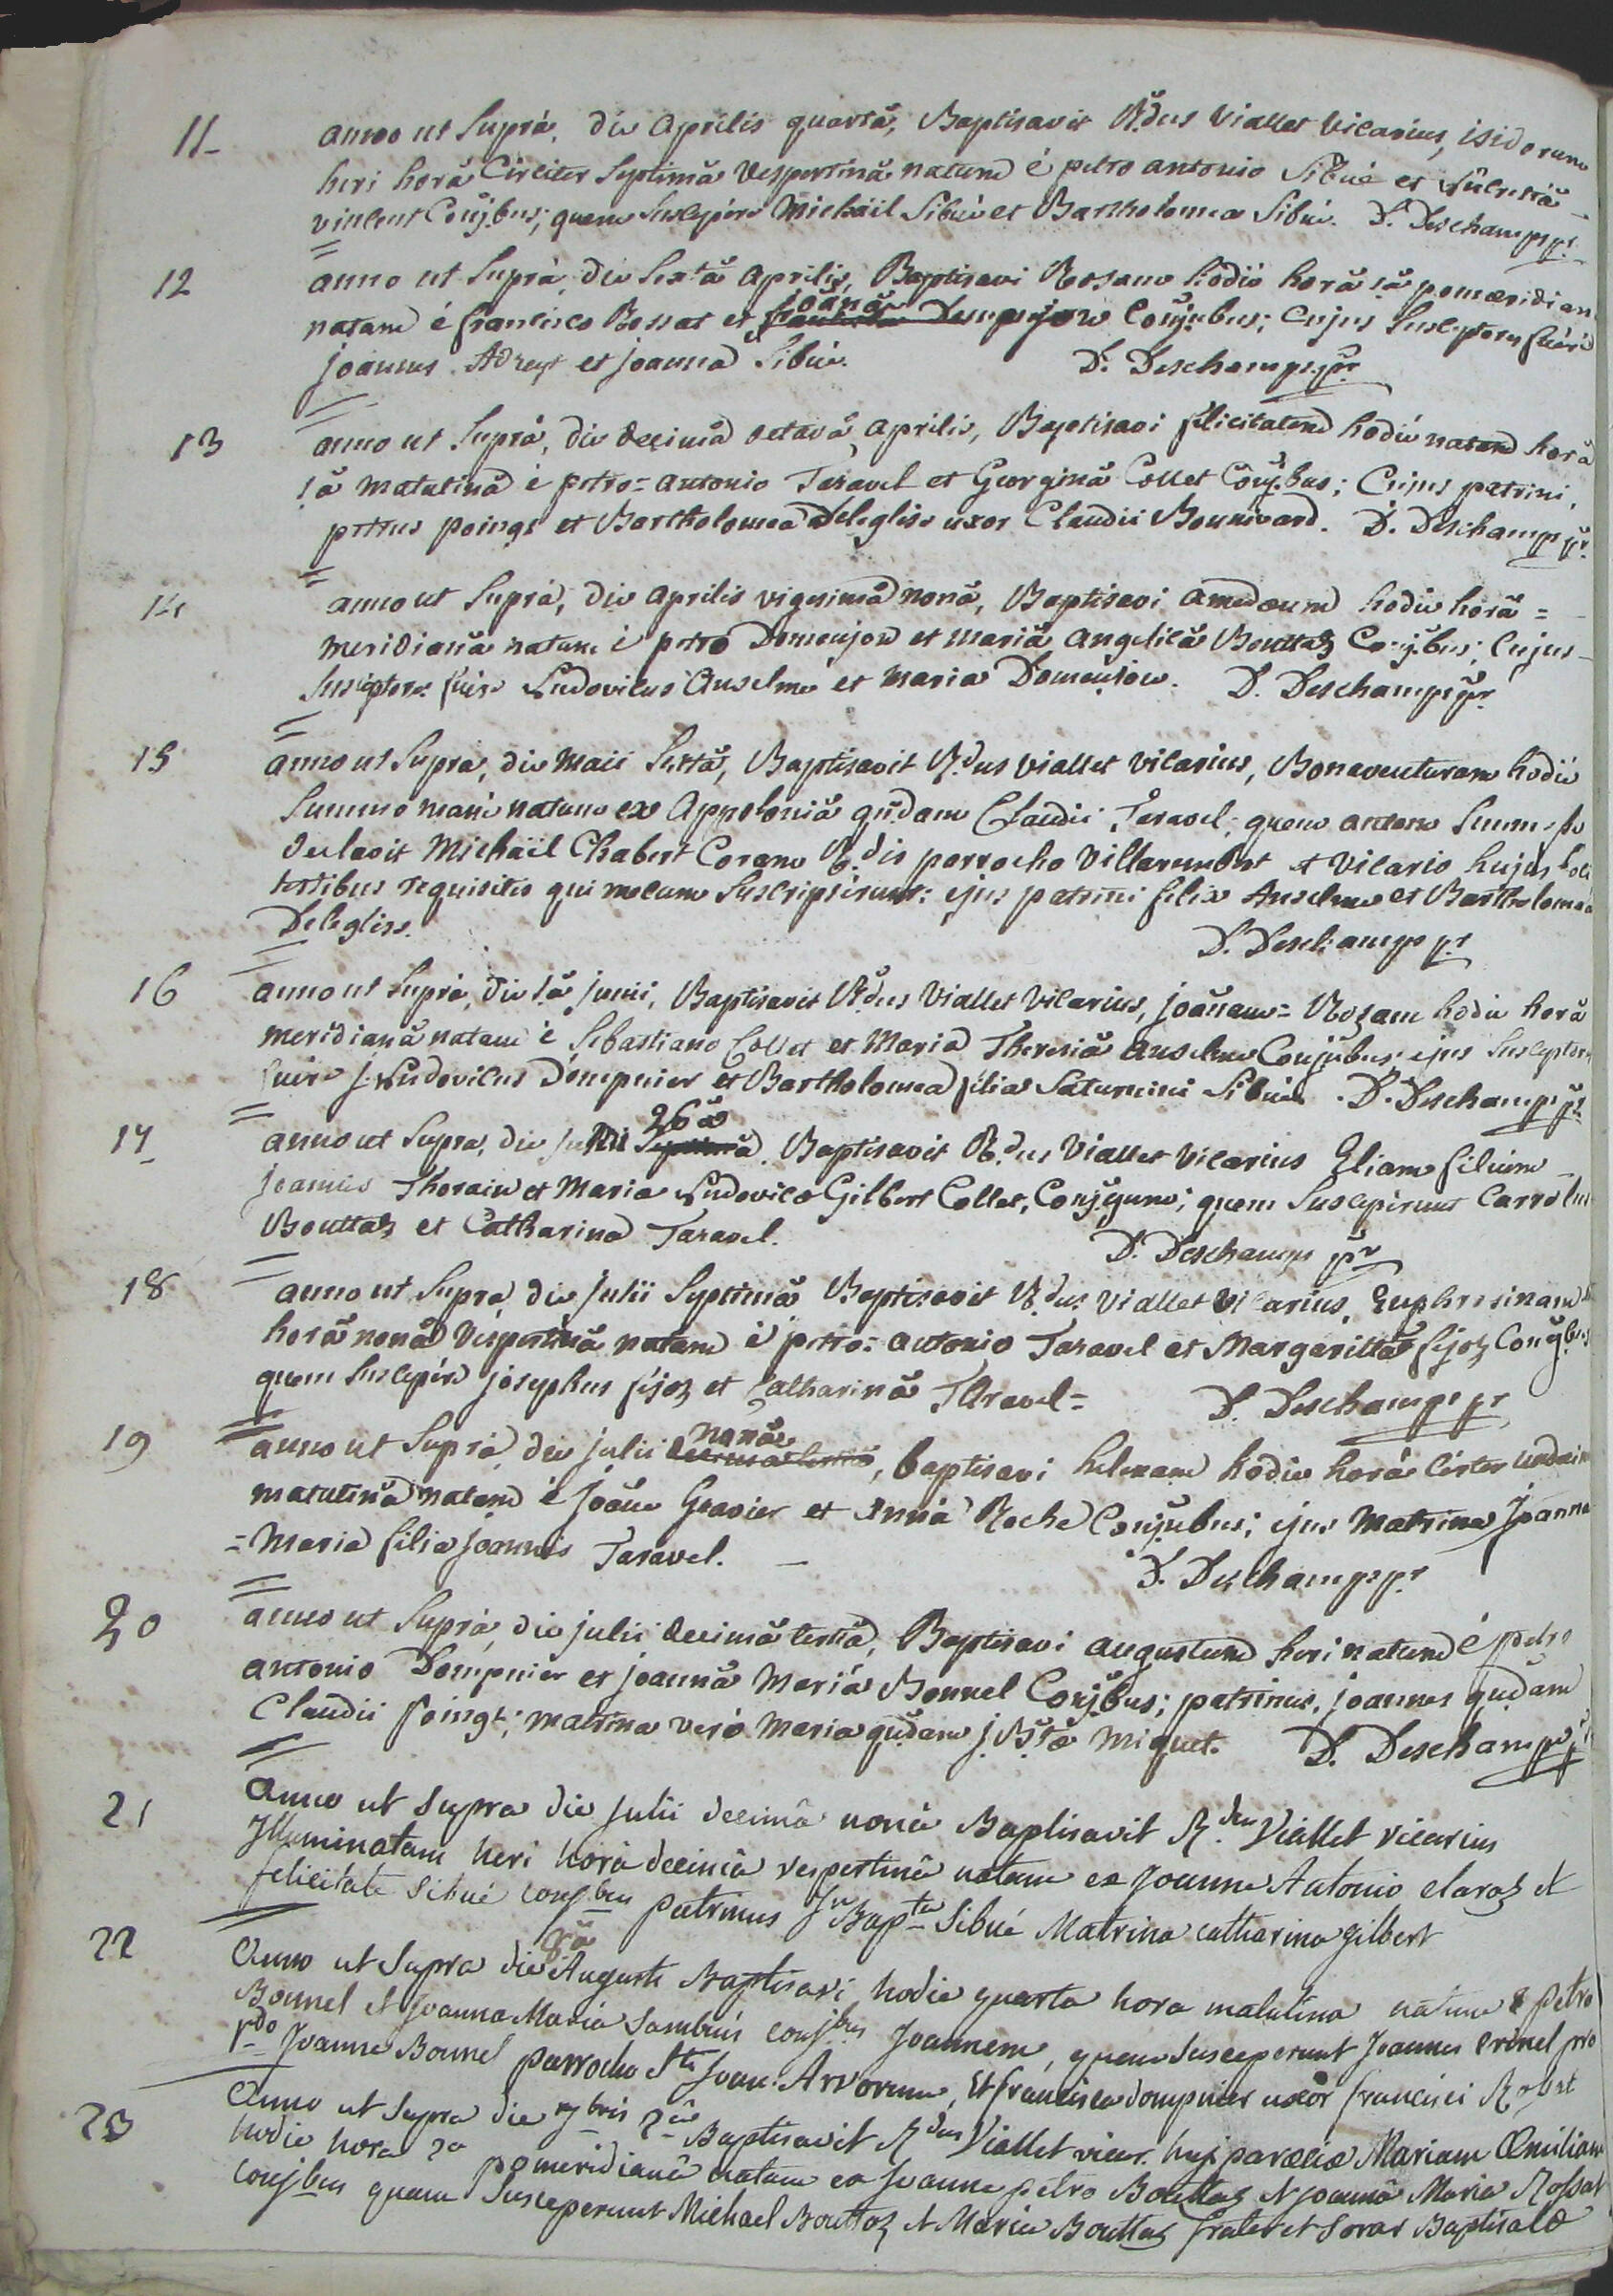 11 anno ut Suprà, die aprilis quartâ, Baptisavit R.dus Viallet Vicarius, isidorum
heri horâ Circiter Septimâ Vespertinâ natum é petro antonio Sibué et
vincent Conj.bus; quem Suscepére Michäil Sibué et Bartholomea Sibué. D. Deschamps pr.
12 anno ut Suprà, die Sextâ aprilis, Baptisavi Rosam hodié horâ 1â pomæridian
natam é francisco Rossat et joanâ Dompnjon Conjubus; Cujus Susceptores fuére
joannes Adreyt et joanna Sibué. D. Deschamps pr
13 anno ut Suprà, die decimâ octavâ aprilis, Baptisavi felicitatem hodié natam horâ
1â matutinâ é petro=antonio Taravel et Georginâ Collet Conj.bus; Cujus patrini,
petrus poingt et Bartholomea Deleglise uxor Claudii Bonnivard. D. Deschamps pr.
14 anno ut Suprà, die aprilis vigesimâ nonâ, Baptisavi amedæum hodie horâ =
meridianâ natum é petro Domenjon et mariâ angelicâ Bouttaz Conj.bus; Cujus
Susceptores fuére Ludovicus anselme et maria Domenjon. D. Deschamps pr
15 anno ut Suprà, die maii Sextâ, Baptisavit R.dus Viallet vicarius, Bonaventuram hodié
Summo mané natum ex appoloniâ qudam Claudii Taravel; quem autem Suum esse
declavit Michäil Chabert Coram R.dis parrocho Villarembert et Vicario hujus loci
testibus requisitis qui mecum Suscripsérunt: ejus patrini felix Anselme et Bartholomæa
Deleglise. D. Deschamps pr.
16 anno ut Suprà, die 1â junii, Baptisavit R.dus Viallet Vicarius, joanam=Rozam hodie horâ
meridianâ natam é Sebastiano Collet et Mariâ Theresiâ anselme Conjubus; ejus Susceptores
fuére j. Ludovicus Dompnier et Bartholomea filia Saturnini Sibué. D. Deschamps pr.
17 anno ut Supra, die junii Septimâ 26â Baptisavit R.dus Viallet Vicarius Eliam filium
joannis Thorain et Maria Ludovica Gilbert Collet, Conj.gum; quem Suscepérunt Carrolus
Bouttaz et Catharina Taravel. D. Deschamps pr
18 anno ut Supra, die julii Septimâ Baptisavit R.dus Viallet Vicarius, Euphrosinam
horâ nonâ Vespertinâ natam é petro=antonio Taravel et Margarittâ fejoz Conj.bus
quem Suscepére josephus fejoz et Catharina Taravel= D. Deschamps pr
19 anno ut Suprà, die julii nonâ, baptisavi helenam hodie horâ Cirter undecim
matutinâ natam é joane Gravier et annâ Roche Conjubus; ejus Matrina Joanna
=Maria filia joannis Taravel. D. Deschamps pr
20 anno ut Suprà, die julii decimâ tertiâ, Baptisavi augustum heri natum é petro
antonio Dompnier et joannâ Mariâ Bonnel Conj.bus; patrinus, joannes qudam
Claudii poingt; matrina verò Maria qudam j. B.tæ Miquet. D. Deschamps pr
21 Anno ut Supra die julii decimâ nonâ Baptisavit R.dus Viallet vicarius
Illuminatam heri horâ decimâ vespertinâ natam ex Joanne Antonio claraz et
felicitate Sibué conj.bus patrinus J.n Bap.te Sibué Matrina catharina gilbert
22 Anno ut Supra die 8â Augusti Baptisavi hodie quarta hora matutina natum é petro
Bonnel et Joanna Maria Sambuis conj.bus Joannem, quem Susceperunt Joannes bronel pro
r.do Joanne Bonnel parrocho S.ti Joan. Arvorum, et francisca dompnier uxor francisci Rossat
23 Anno ut Supra die 7bris 2â Baptisavit R.dus Viallet vicar. huj. parœciæ Mariam Æmiliam
hodie hora 2a pomeridianâ natam ex Joanne petro Bouttaz et joannâ Maria Rossat
conj.bus quam Susceperunt Michael Bouttaz et Maria Bouttaz frater et Soror Baptisatæ